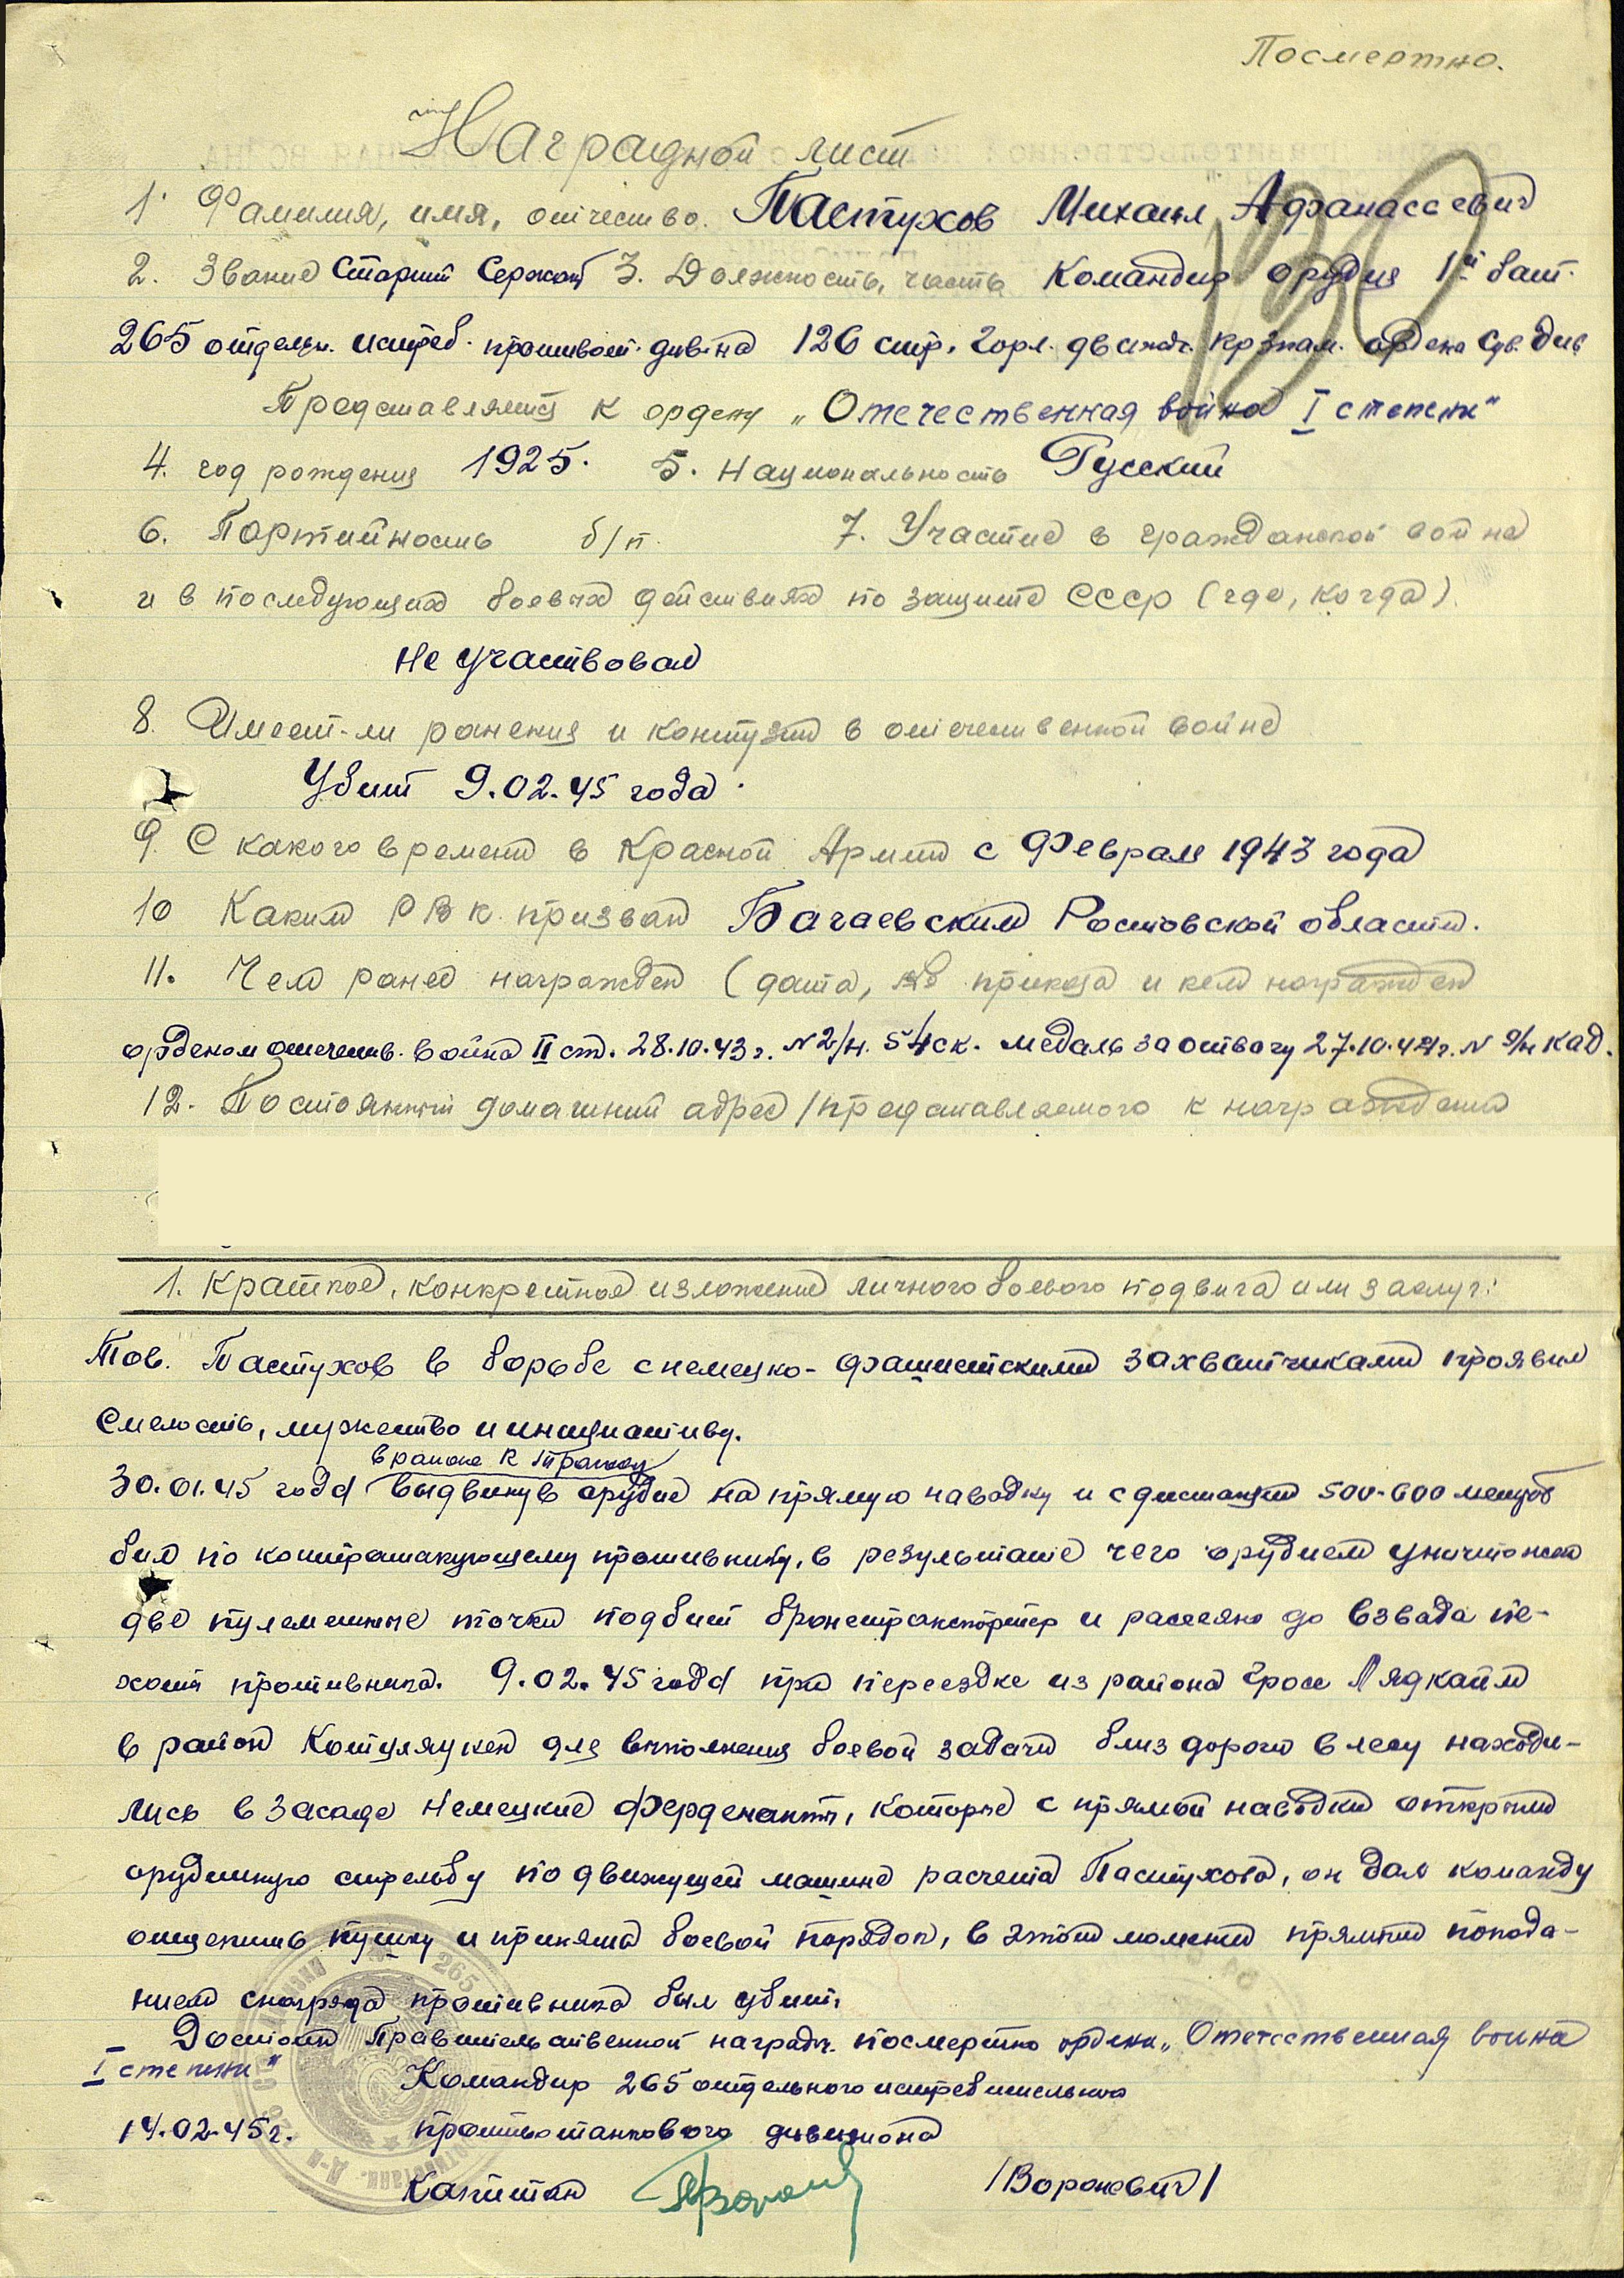 Посмертно.
Наградной лист
1. Фамилия, имя, отчество. Пастухов Михаил Афанассевич
2. Звание Старший Сержант 3. Должность, часть Командир орудия 1й бат.
265 отдельн. истреб. противот. див-на 126 стр. Горл. дважды кр знам. ордена Сув. див
Представляется к ордену „Отечественная война I степени"
4. год рождения 1925. 5. Национальность Русский
6. Партийность б/п. 7. Участие в гражданской войне
и в последующих боевых действиях по защите СССР (где, когда).
не участвовал
8. Имеет-ли ранения и контузии в отечественной войне
Убит 9.02.45 года.
9. С какого времени в Красной Армии с Февраля 1943 года
10 Каким РВК призван Багаевским Ростовской области.
11. Чем ранее награжден (дата, № приказа и кем награжден
орденом отечеств. война II ст. 28.10.43г. N2/н. 54ск. медаль за отвагу 27.10.44г. N 9/н кад.
12. Постоянный домашний адрес /представляемого к награждению
1. Краткое, конкретное изложение личного боевого подвига или заслуг:
Тов. Пастухов в борьбе с немецко-фашистскими захватчиками проявил
смелость, мужество и инициативу.
в районе
30.01.45 года выдвинув орудие на прямую наводку и с дистанции 500-600 метров
бил по контратакующему противнику, в результате чего орудием уничтожен
две пулеметные точки подбит бронетранспортер и рассеяно до взвада пе-
хоты противника. 9.02.45 года при переездке из района Грос Лядкайм
в район для выполнения боевой задачи близ дороги в лесу находи-
лись в засаде немецкие Ферденанты, которые с прямой наводки открыли
орудийную стрельбу по движущей машине расчета Пастухова, он дал команду
отцепить пушку и принять боевой порядок, в этот момент прямым попода-
нием снаряда противника был убит.
Достоин Правительственной награды посмертно ордена „Отечественная война
I степени"
Командир 265 отдельного истребительного
14.02.45г. противотанкового дивизиона
Капитан /Воронович/